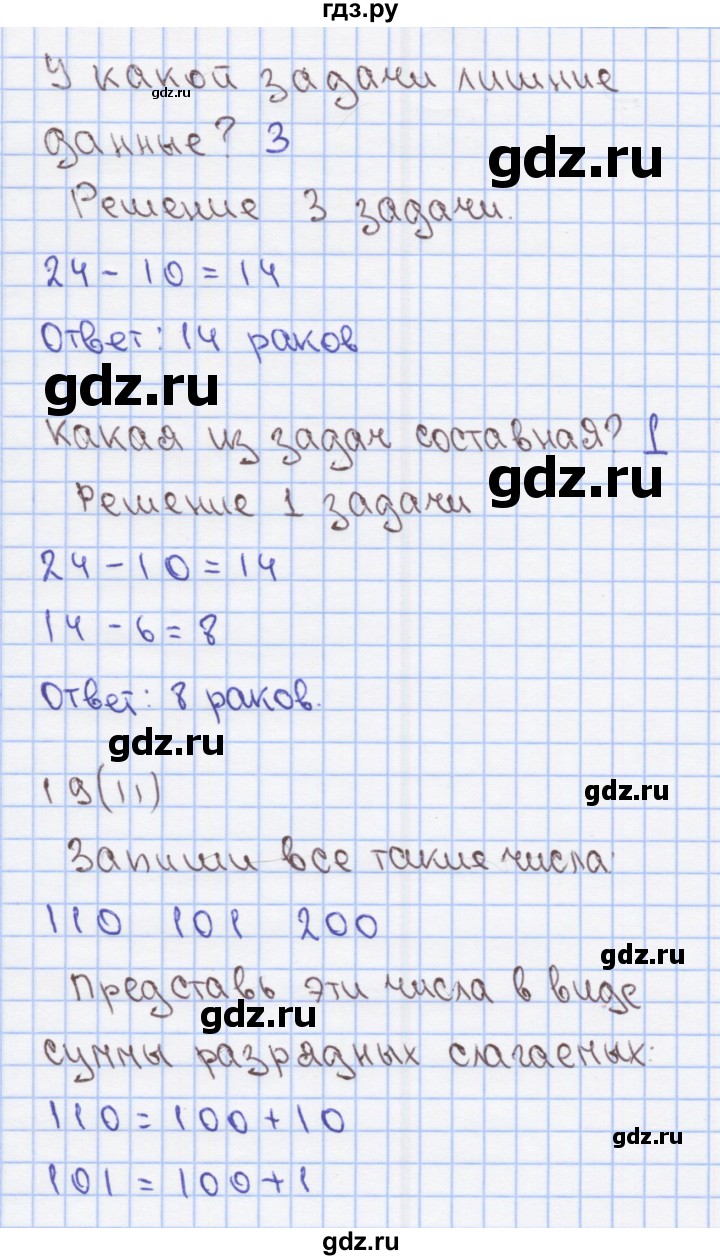 гдз.ру
У какой задачи лишние
gdz.ru
данные? 3
gdz.ru
Решение 3 задачи.
24 - 10 = 14
Ответ: 14 раков
gdz.ru
Какая из задач составная? 1
gdz.ru
Решение 1 задачи
24 - 10 = 14
14 - 6 = 8
Ответ: 8 раков.
gdz.ru
19(11)
gdz.ru
Запиши все такие числа:
110 101 200
gdz.ru
Представь эти числа в виде
gdz.ru
суммы разрядных слагаемых:
110 = 100 + 10
gdz.ru
101 = 100 + 1
gdz.ru